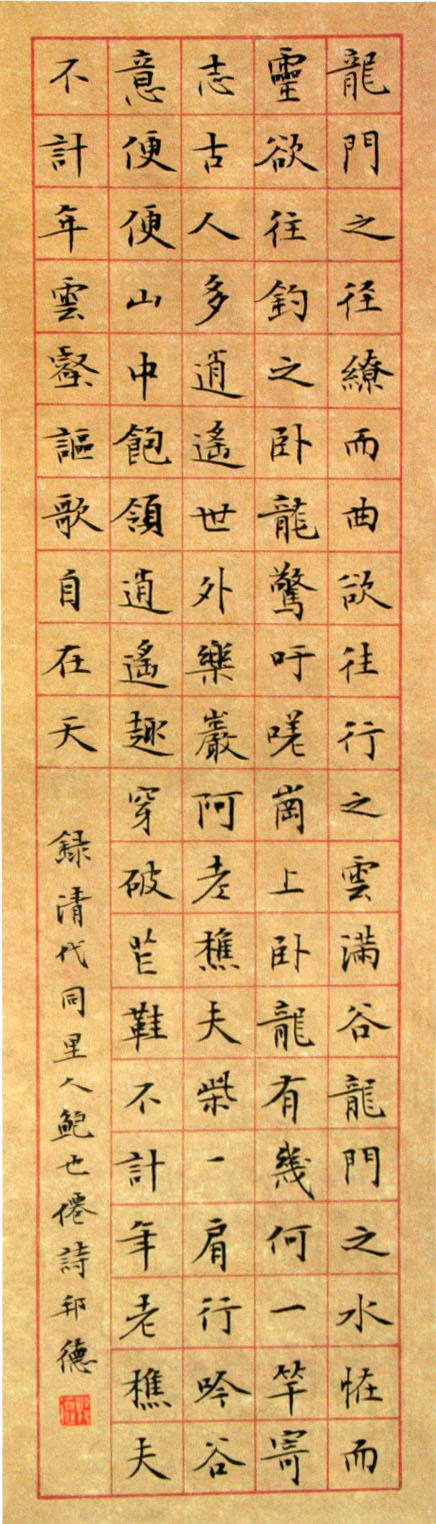 龍門之徑繚而曲欲往行之雲滿谷龍門之水恠而
靈欲往釣之卧龍驚吁嗟崗上卧龍有幾何一竿寄
志古人多逍遙世外樂巖阿老樵夫柴一肩行吟谷
意便便山中飽領逍遙趣穿破芒鞋不計年老樵夫
不計年雲壑謳歌自在天
録清代同里人鮑也僊詩邦德